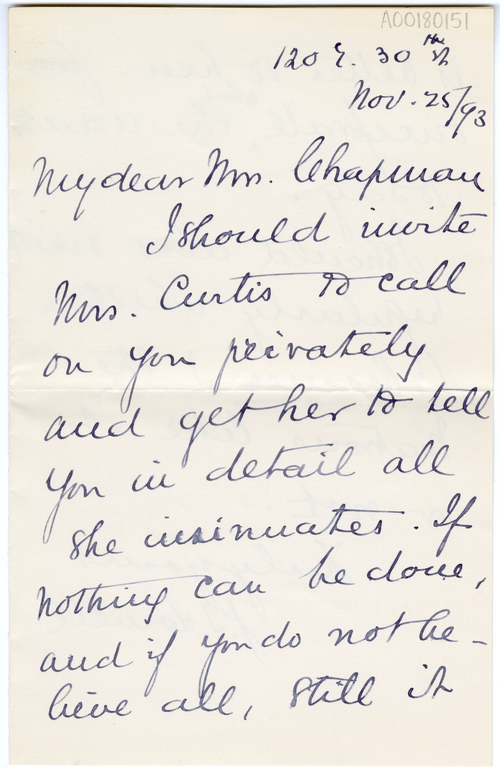 A00180151
120 E. 30th St
Nov. 25/93
My dear Mrs. Chapman
I should invite
Mrs. Curtis to call
on you privately
and get her to tell
you in detail all
she insinuates. If
nothing can be done,
and if you do not be-
lieve all, still it